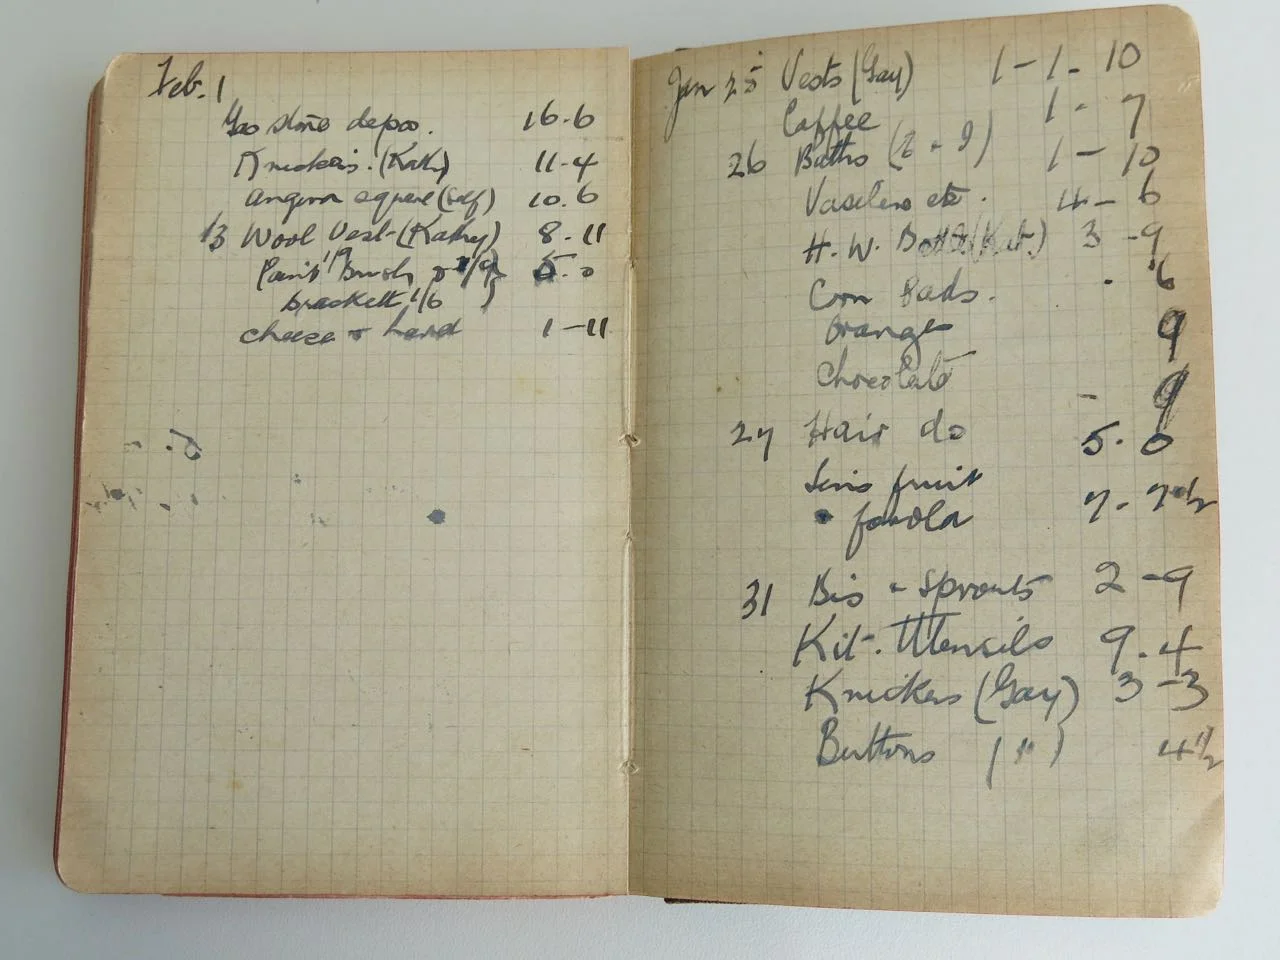 Feb. 1
Gas stove depos. 16-6
Knickers. (Kath) 11-4
Angora square (self) 10.6
13 Wool Vest-(Kathy) 8-11
Paint Brush 5-0
brackett 1/6
cheese + 1-11
Jan 25 Vests (Gay) 1-1-10
Coffee 1-7
26 Baths 1-10
Vaseline etc. 4-6
H.W. Bottle (Kat.) 3-9
Corn Pads. 6
Oranges 9
Chocolate - 9
27 Hair do 5.0
fruit
7-7½
31 Bis + Sprouts 2-9
Kit. Utensils 9.4
Knickers (Gay) 3-3
Buttons ( " ) 4½